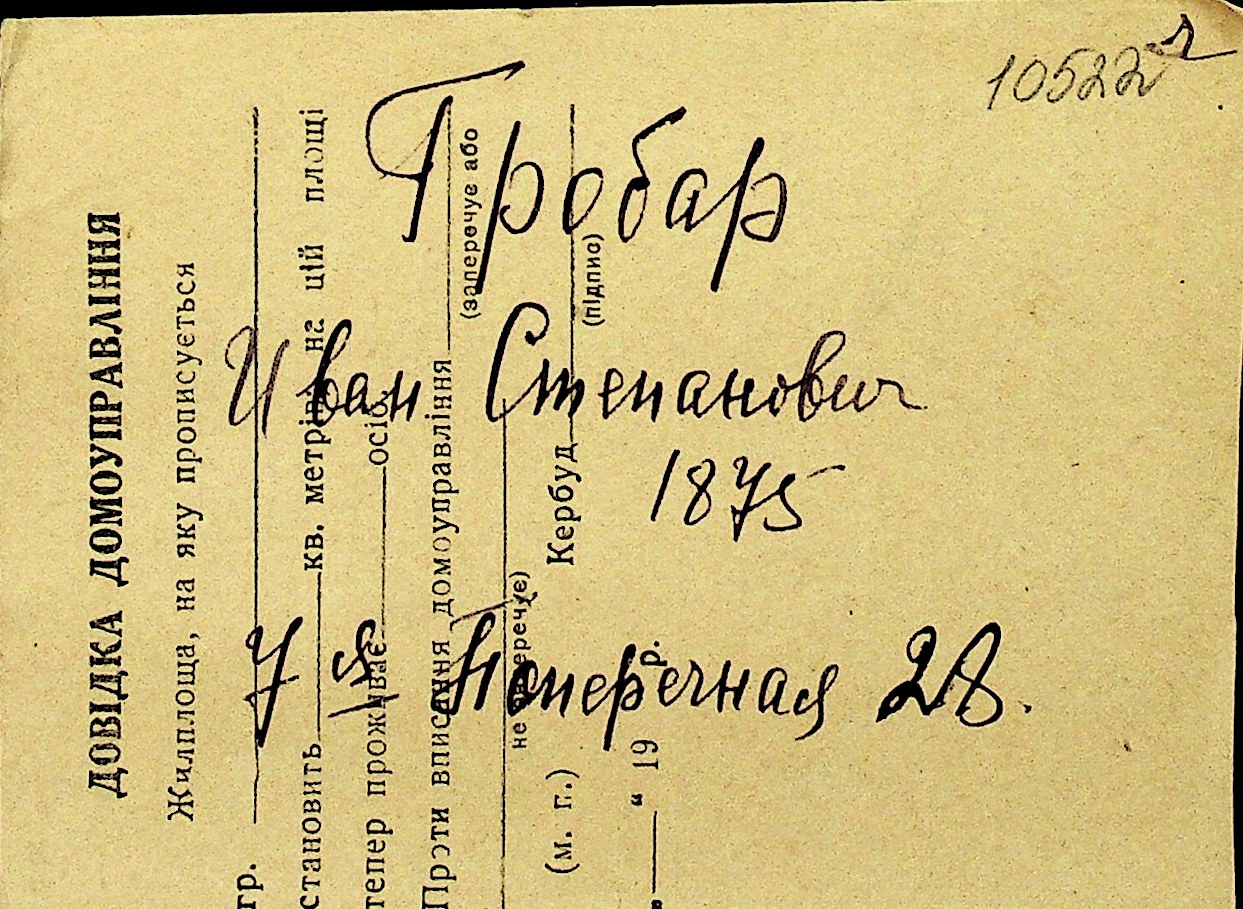 10522 г
Гробар
Иван Степанович
1875
7 я Поперечная 28.
ДОВІДКА ДОМОУПРАВЛІННЯ
Жилплоща, на яку прописується
гр.
становить кв. метрів на цій площі
тепер проживає осіб.
Проти вписання домоуправління
(заперечує або
не заперечує)
Кербуд
(підпис)
(м. п.)
“ 19 р.